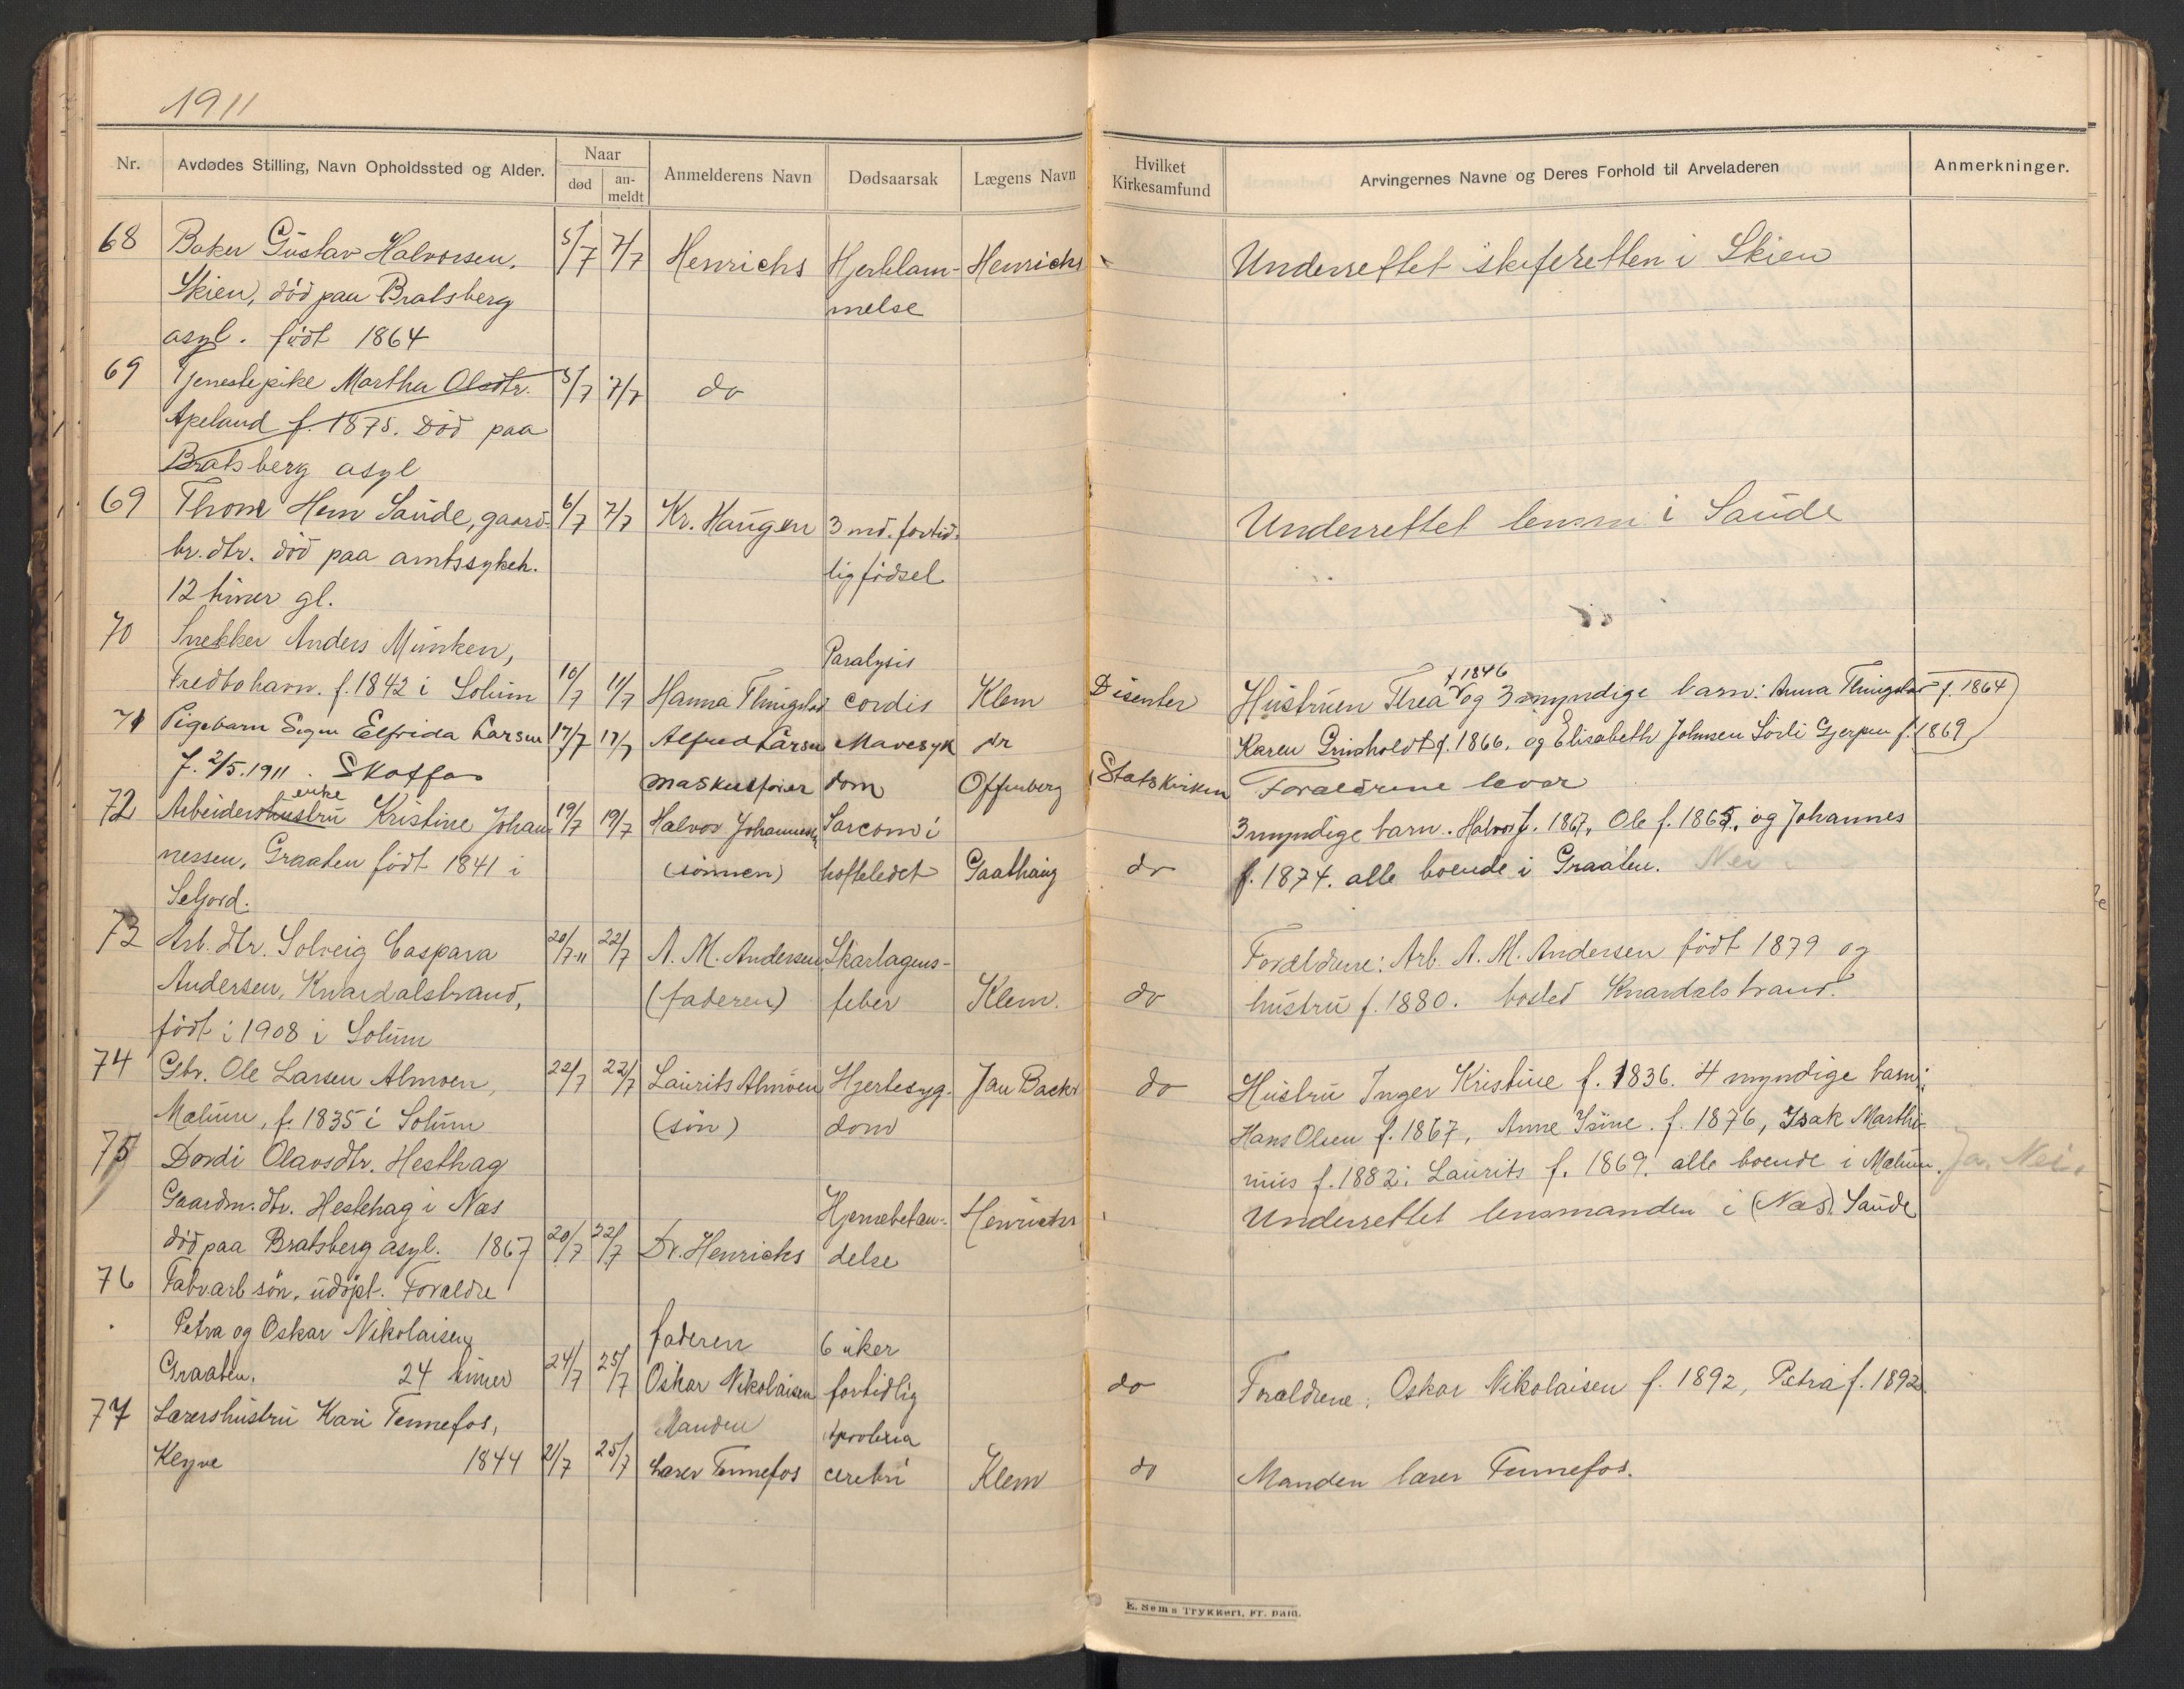 1911
Nr.
Avdødes Stilling, Navn Opholdssted og Alder.
Naar
død
an-
meldt
Anmelderens Navn
Dødsaarsak
Lægens Navn
Hvilket
Kirkesamfund
Arvingernes Navne og Deres Forhold til Arveladeren
Anmerkninger.
68 Baker Gustav Halvorsen, 5/7 7/7 Henrichs Hjertelam- Henrichs Underrettet skifteretten i Skien
Skien, död paa Bratsberg melse
asyl. födt 1864
69 Tjenestepike Martha Olsdtr. 5/7 7/7 do
Apeland f. 1875. Död paa
Bratsberg asyl
69 Thom Hem Saude, gaard- 6/7 7/7 Kr. Haugen 3 md. fortid- Underrettet lensm i Saude
br. dtr. död paa amtssykeh. lig födsel
12 timer gl.
70 Snekker Anders Munken, Paralysis
Fredbohavn. f. 1842 i Solum 10/7 11/7 Hanna Thingstad cordis Klem Disenter Hustruen Thea f 1846 og 3 myndige barn: Anna Thingstad f. 1864
Karen Grinholdt f. 1866. og Elisabeth Johnsen Sörli Gjerpen f. 1869
71 Pigebarn Signe Elfrida Larsen 17/7 17/7 Alfred Larsen Mavesyk dr
f. 2/5.1911. Skotfos maskinförer dom Offenberg Statskirken Foraldrene lever
72 Arbeiderhustru enke Kristine Johan 19/7 19/7 Halvor Johannesen Sarcom i 3 myndige barn. Halvor f. 1867, Ole f. 1865, og Johannes
nessen, Graaten födt 1841 i (sönnen) hofteledet Gaathaug do f. 1874. alle boende i Graaten. Nei
Seljord.
73 Arb. dtr. Solveig Caspara 20/7-11 22/7 A. M. Andersen Skarlagens- Foraldrene: Arb. A. M. Andersen födt 1879 og
Andersen, Knardalstrand, (faderen) feber Klem. do hustru f. 1880. bosted Knardalstrand.
födt i 1908 i Solum
74 Gbr. Ole Larsen Almoen, 22/7 22/7 Laurits Almoen Hjertesyg- Jan Backe do Hustru Inger Kristine f. 1836. 4 myndige barn:
Mælum, f. 1835 i Solum (sön) dom Hans Olsen f. 1867, Anne Isine. f. 1876, Isak Marthi-
nius f. 1882. Laurits f. 1869. alle boende i Mælum. Ja. Nei.
75 Dordi Olavsdtr. Hesthag
Gaardm. dtr. Hestehag i Næs Hjernebetæn- Henrichs Underrettet lensmanden i (Næs) Saude
död paa Bratsberg asyl. 1867 20/7 22/7 Dr. Henrichs delse
76 Fabr.arb sön. udöpt. Foraldre
Petra og Oskar Nikolaisen faderen 6 uker
Graaten. 24 timer 24/7 25/7 Oskar Nikolaisen fortidlig do Foraldrene. Oskar Nikolaisen f. 1892, Petra f. 1892.
77 Lærershustru Kari Tennefos, Manden
Klyve 1844 21/7 25/7 Lærer Tennefos cerebri Klem do Manden lærer Tennefos.
E. Sems Trykkeri, Fr. hald.